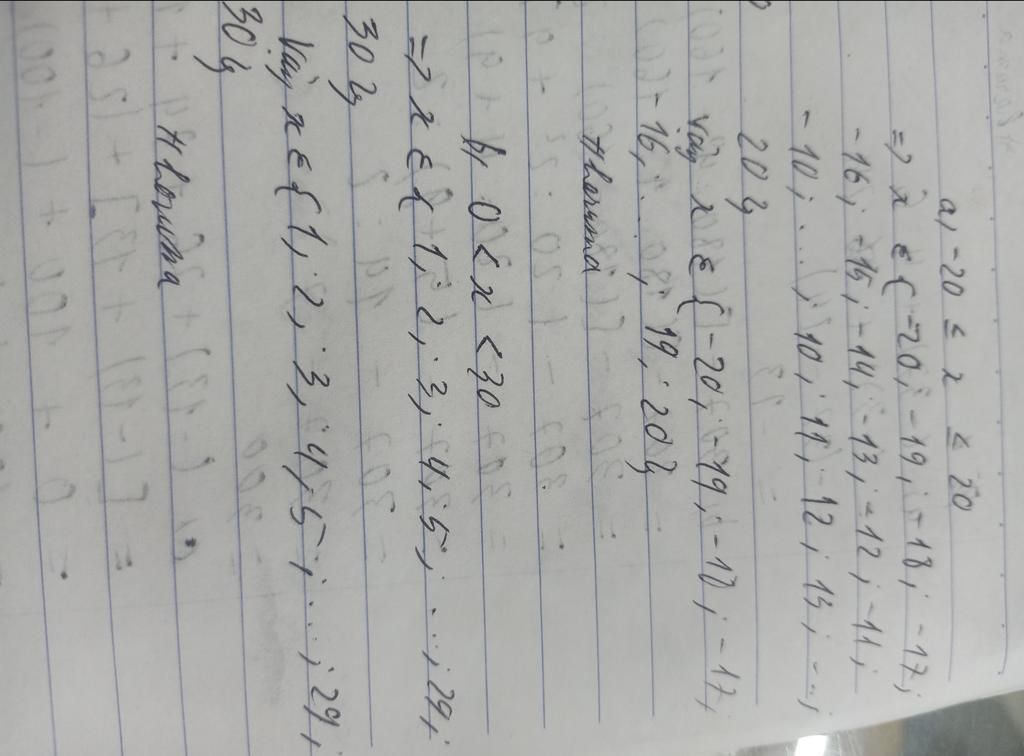 a, -20 ≤ x ≤ 20
=> x ∈ { -20; -19; -18; -17;
-16; -15; -14; -13; -12; -11;
-10; ...; 10; 11; 12; 13; ...;
20 }
Vậy x ∈ { -20; -19; -18; -17;
-16; ...; 19; 20 }
b, 0 < x < 30
=> x ∈ { 1; 2; 3; 4; 5; ...; 29;
30 }
Vậy x ∈ { 1; 2; 3; 4; 5; ...; 29;
30 }